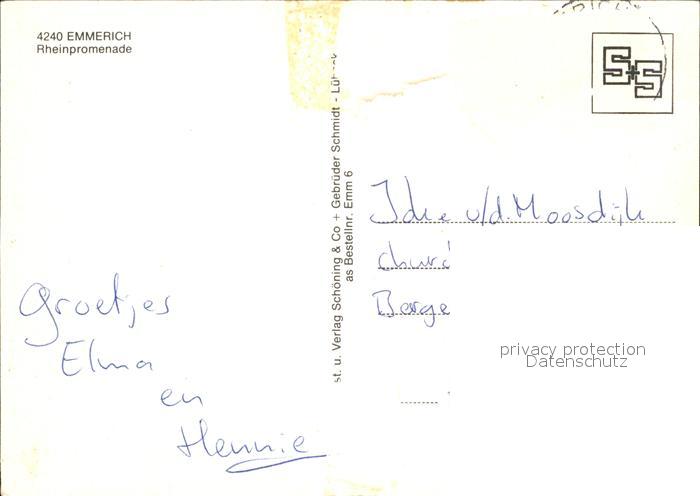 4240 EMMERICH
Rheinpromenade
S+S
st. u. Verlag Schöning & Co + Gebrüder Schmidt - Lübeck
as Bestellnr. Emm 6
v/d. Moosdijk
Berge
privacy protection
Datenschutz
Groetjes
Elma
en
Hennie